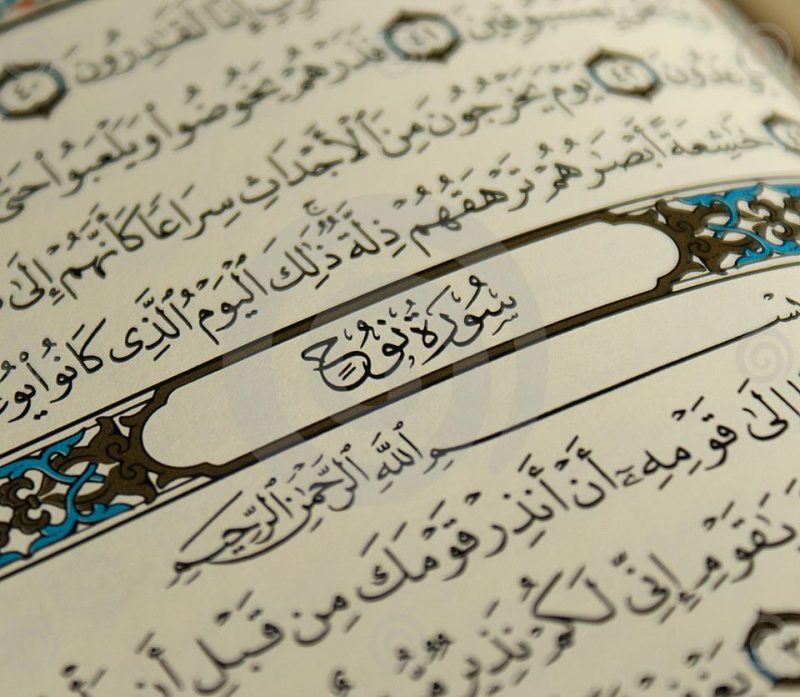 إِنَّا لَقَٰدِرُونَ ٤٠
بِمَسْبُوقِينَ ٤١ فَذَرْهُمْ يَخُوضُوا۟ وَيَلْعَبُوا۟ حَتَّىٰ
يُوعَدُونَ ٤٢ يَوْمَ يَخْرُجُونَ مِنَ ٱلْأَجْدَاثِ سِرَاعًا كَأَنَّهُمْ إِلَىٰ
خَٰشِعَةً أَبْصَٰرُهُمْ تَرْهَقُهُمْ ذِلَّةٌ ۚ ذَٰلِكَ ٱلْيَوْمُ ٱلَّذِى كَانُوا۟
سُورَةُ نُوحٍ
بِسْمِ ٱللَّهِ ٱلرَّحْمَٰنِ ٱلرَّحِيمِ
إِلَىٰ قَوْمِهِۦٓ أَنْ أَنذِرْ قَوْمَكَ مِن قَبْلِ أَن
يَٰقَوْمِ إِنِّى لَكُمْ نَذِيرٌ